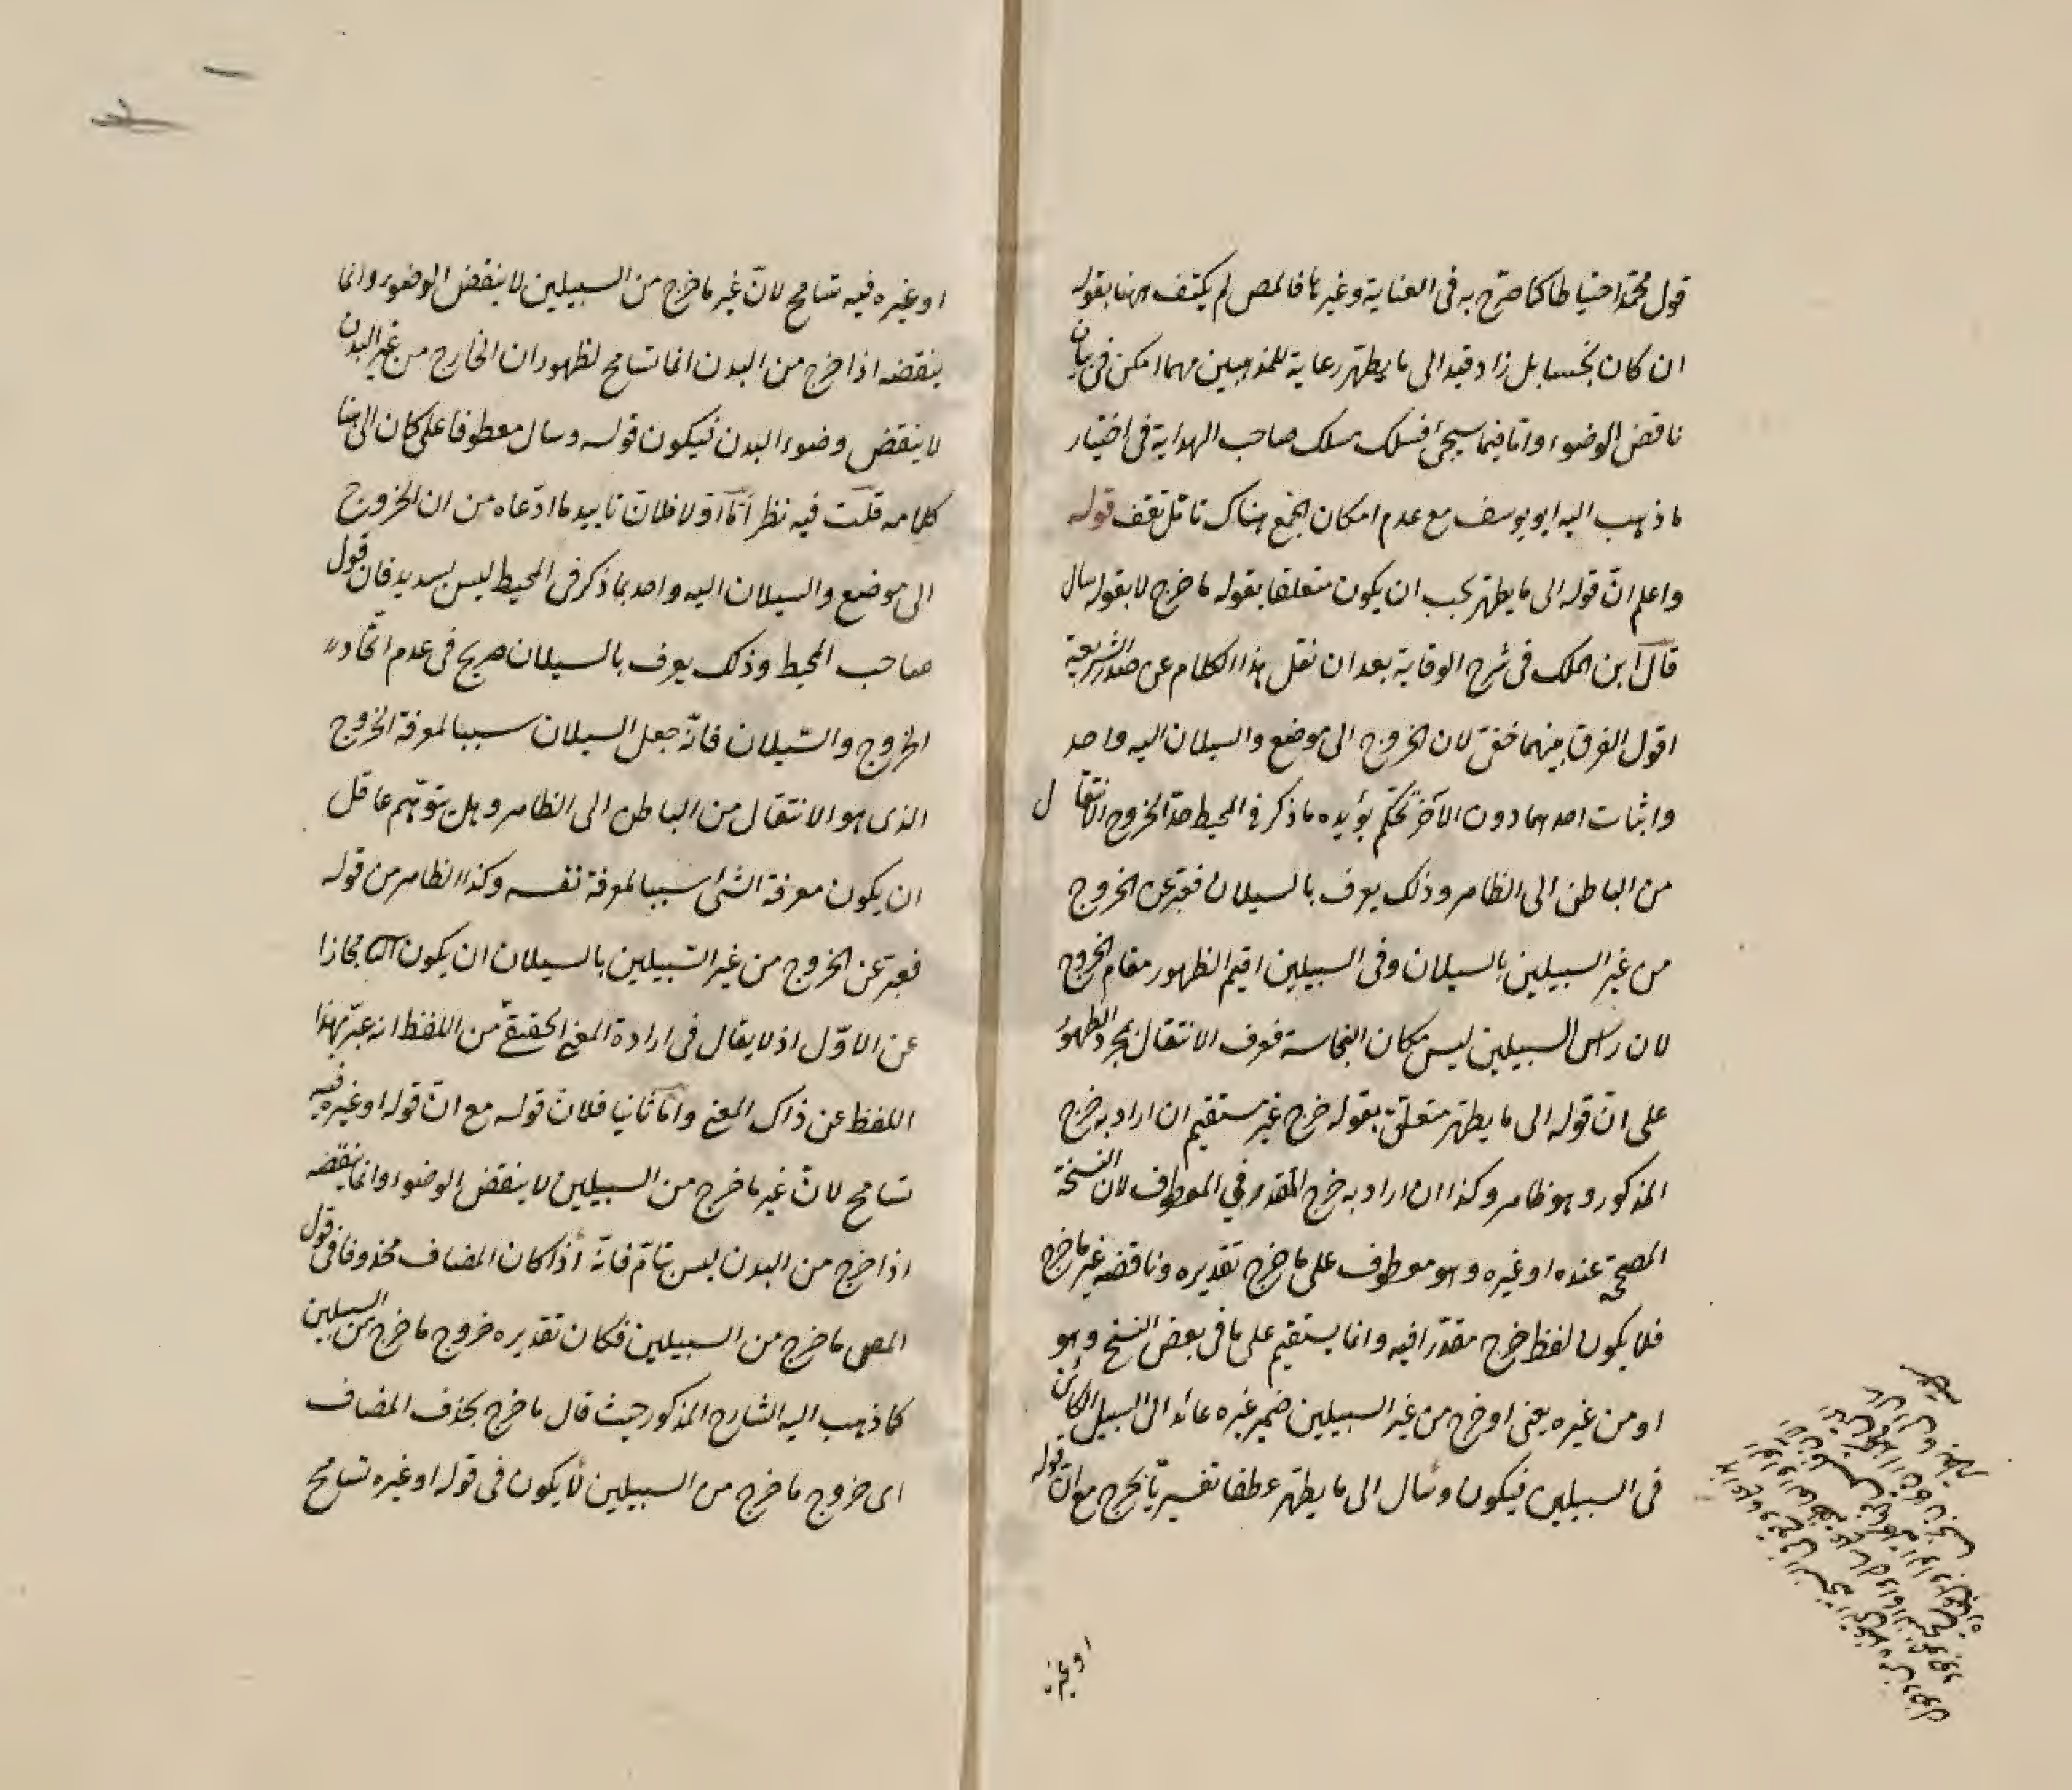 قول محمد احتياطا كما صرّح به فى العناية وغيرها فالمص لم يكتف ههنا بقوله
ان كان نجسا بل زاد قيد الى ما يطهر رعاية للمذهبين مهما امكن فى بيان
ناقض الوضوء واما فيما سيجئ فسلك مسلك صاحب الهداية فى اختيار
ما ذهب اليه ابو يوسف مع عدم امكان الجمع هناك تأمّل تقف قوله
واعلم انّ قوله الى ما يطهر يجب ان يكون متعلقا بقوله ما خرج لا بقوله سال
قال ابن الملك فى شرح الوقاية بعد ان نقل هذا الكلام عن صدر الشريعة
اقول الفرق بينهما خفىّ لان الخروج الى موضع والسيلان اليه واحد
واثبات احدهما دون الآخر تحكّم يؤيده ما ذكر فى المحيط حدّ الخروج الانتقال
من الباطن الى الظاهر وذلك يعرف بالسيلان فعبّر عن الخروج
من غير السبيلين بالسيلان وفى السبيلين اقيم الظهور مقام الخروج
لان رأس السبيلين ليس مكان النجاسة فعرف الانتقال بمجرد الظهور
على انّ قوله الى ما يطهر متعلّق بقوله خرج غير مستقيم ان اراد به خرج
المذكور وهو ظاهر وكذا ان اراد به خرج المقدّر فى المعطوف لان النسخة
المصحّحة عنده او غيره وهو معطوف على ما خرج تقديره وناقضه غير ما خرج
فلا يكون لفظ خرج مقدّرا فيه وانما يستقيم على ما فى بعض النسخ وهو
او من غيره يعنى او خرج من غير السبيلين ضمير غيره عائد الى السبيل الكائن
فى السبيلين فيكون وسال الى ما يطهر عطفا تفسيريّا لخرج مع ان قوله
او غيره
او غيره فيه تسامح لانّ غير ما خرج من السبيلين لا ينقض الوضوء وانما
ينقضه اذا خرج من البدن انما تسامح لظهور ان الخارج من غير البدن
لا ينقض وضوء البدن فيكون قوله وسال معطوفا على كان الى هنا
كلامه قلت فيه نظر امّا اوّلا فلانّ تاييد ما ادّعاه من ان الخروج
الى موضع والسيلان اليه واحد بما ذكر فى المحيط ليس بسديد فان قول
صاحب المحيط وذلك يعرف بالسيلان صريح فى عدم اتّحاد
الخروج والسّيلان فانّه جعل السيلان سببا لمعرفة الخروج
الذى هو الانتقال من الباطن الى الظاهر وهل يتوهّم عاقل
ان يكون معرفة الشئ سببا لمعرفة نفسه وكذا الظاهر من قوله
فعبّر عن الخروج من غير السّبيلين بالسيلان ان يكون مجازا
عن الاوّل اذ لا يقال فى ارادة المعنى الحقيقىّ من اللفظ انه عبّر بهذا
اللفظ عن ذاك المعنى وامّا ثانيا فلانّ قوله مع انّ قوله او غيره فيه
تسامح لانّ غير ما خرج من السبيلين لا ينقض الوضوء وانما ينقضه
اذا خرج من البدن ليس بتامّ فانّه اذا كان المضاف محذوفا فى قول
المص ما خرج من السبيلين فكان تقديره خروج ما خرج من السبيلين
كما ذهب اليه الشارح المذكور حيث قال ما خرج بحذف المضاف
اى خروج ما خرج من السبيلين لا يكون فى قوله او غيره تسامح